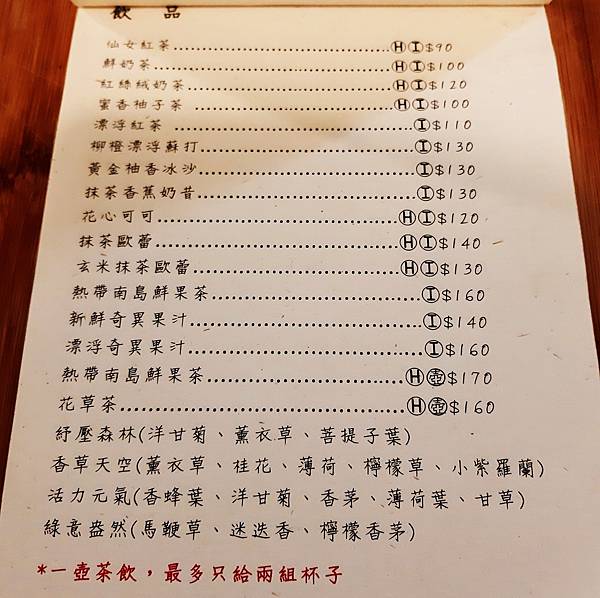 飲 品
仙女紅茶........................................ⒽⒾ$90
鮮奶茶........................................ⒽⒾ$100
紅絲絨奶茶........................................ⒽⒾ$120
蜜香柚子茶........................................ⒽⒾ$100
漂浮紅茶........................................Ⓘ$110
柳橙漂浮蘇打........................................Ⓘ$130
黃金柚香冰沙........................................Ⓘ$130
抹茶香蕉奶昔........................................Ⓘ$130
花心可可........................................ⒽⒾ$120
抹茶歐蕾........................................ⒽⒾ$140
玄米抹茶歐蕾........................................ⒽⒾ$130
熱帶南島鮮果茶........................................Ⓘ$160
新鮮奇異果汁........................................Ⓘ$140
漂浮奇異果汁........................................Ⓘ$160
熱帶南島鮮果茶........................................Ⓗ壺$170
花草茶........................................Ⓗ壺$160
紓壓森林(洋甘菊、薰衣草、菩提子葉)
香草天空(薰衣草、桂花、薄荷、檸檬草、小紫羅蘭)
活力元氣(香蜂葉、洋甘菊、香茅、薄荷葉、甘草)
綠意盎然(馬鞭草、迷迭香、檸檬香茅)
*一壺茶飲，最多只給兩組杯子